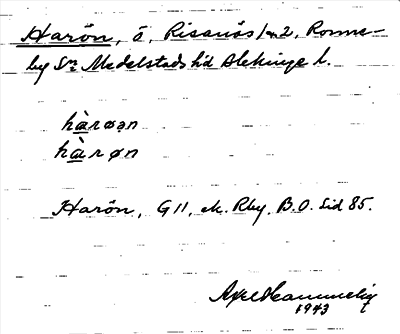 Harön, ö, Risanäs 1 o 2, Ronne-
by Sn Medelstads hd Blekinge l.
hàrøən
hàrøn
Harön, G 11, ek. Rby. B.O. Sid 85.
Axel
1943